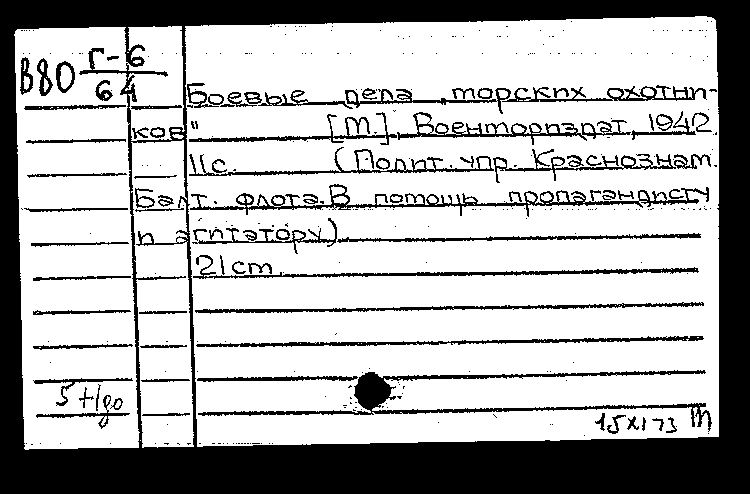 В80 Г-6
64
Боевые дела „морских охотни-
ков" [М.], Военмориздат, 1942.
11с. (Полит. упр. Краснознам.
Балт. флота. В помощь пропагандисту
и агитатору)
21см.
15 XI 73